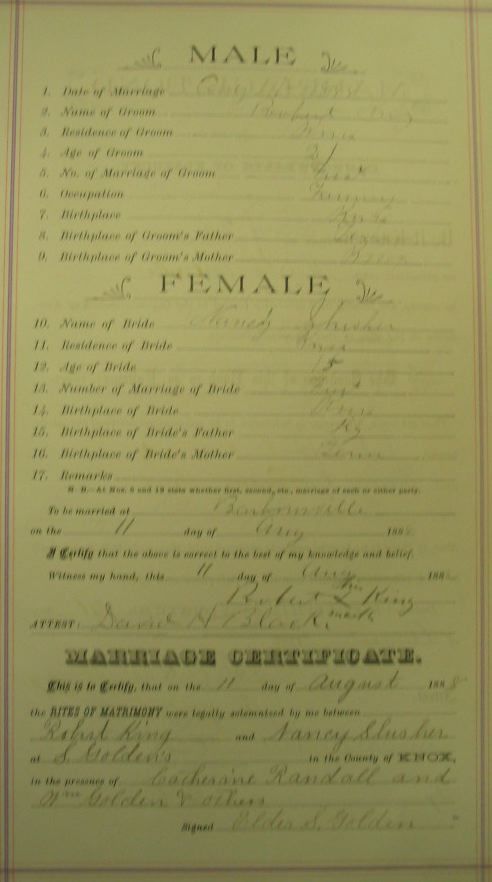 MALE
1. Date of Marriage Aug 11
2. Name of Groom Robert King
3. Residence of Groom
4. Age of Groom 21
5. No. of Marriage of Groom First
6. Occupation
7. Birthplace
8. Birthplace of Groom's Father
9. Birthplace of Groom's Mother
FEMALE
10. Name of Bride Nancy Slusher
11. Residence of Bride
12. Age of Bride
13. Number of Marriage of Bride First
14. Birthplace of Bride
15. Birthplace of Bride's Father Ky
16. Birthplace of Bride's Mother Tenn
17. Remarks
N. B.—At Nos. 5 and 13 state whether first, second, etc., marriage of each or either party.
To be married at Barbourville
on the 11 day of Aug 188
I Certify that the above is correct to the best of my knowledge and belief.
Witness my hand, this 11 day of Aug 188
Robert his X King
mark
ATTEST: David H Black
MARRIAGE CERTIFICATE.
This is to Certify, that on the 11 day of August 1888
the RITES OF MATRIMONY were legally solemnized by me between
Robert King and Nancy Slusher
at S. Golden's in the County of KNOX,
in the presence of Catherine Randall and
Wm Golden & others
Signed Elder S. Golden